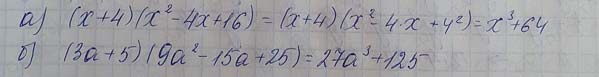 а) (x+4)(x²-4x+16) = (x+4)(x²-4·x+4²)=x³+64
б) (3a+5)(9a²-15a+25)=27a³+125